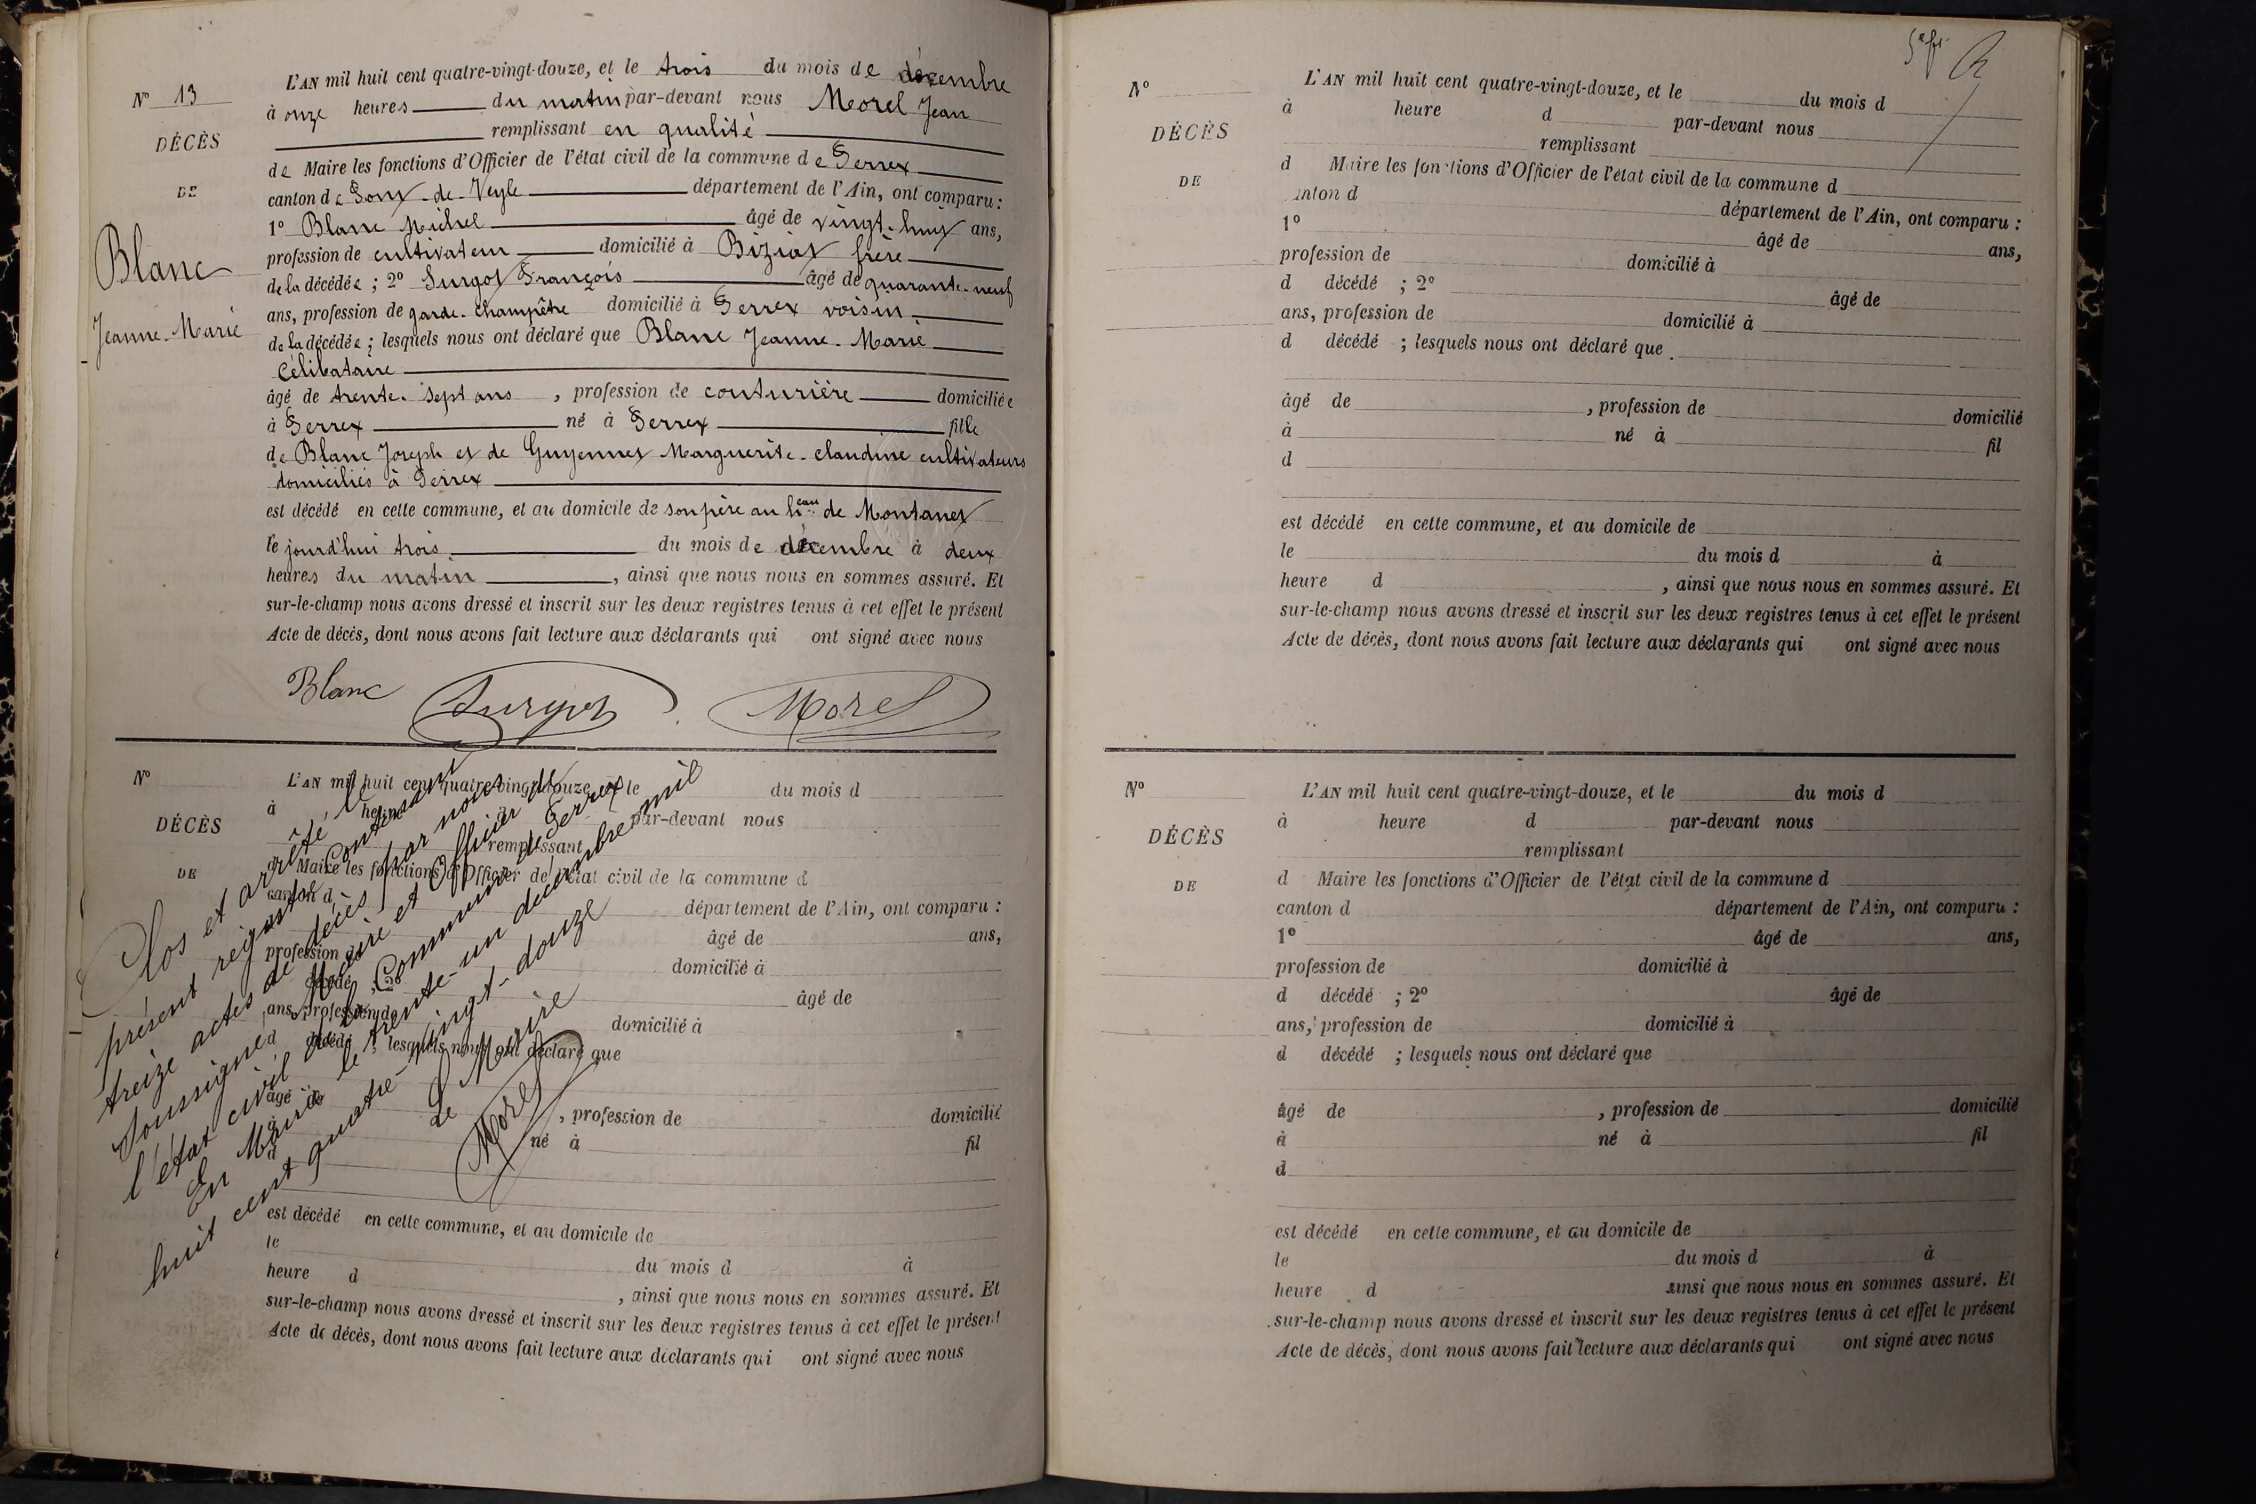 N° 13
DÉCÈS
DE
Blanc
Jeanne-Marie
L'AN mil huit cent quatre-vingt-douze, et le trois du mois de décembre
à onze heures du matin par-devant nous Morel Jean
remplissant en qualité
de Maire les fonctions d'Officier de l'état civil de la commune de Perrex
canton de Pont-de-Veyle département de l'Ain, ont comparu :
1° Blanc Michel âgé de vingt-huit ans,
profession de cultivateur domicilié à Biziat frère
de la décédée ; 2° Surgot François âgé de quarante-neuf
ans, profession de garde-champêtre domicilié à Perrex voisin
de la décédée ; lesquels nous ont déclaré que Blanc Jeanne-Marie
Célibataire
âgé de trente-sept ans , profession de couturière domiciliée
à Perrex né à Perrex fille
de Blanc Joseph et de Guyennet Marguerite-claudine cultivateurs
domiciliés à Perrex
est décédé en cette commune, et au domicile de son père au heau de Montanet
le jourd'hui trois du mois de décembre à deux
heures du matin , ainsi que nous nous en sommes assuré. Et
sur-le-champ nous avons dressé et inscrit sur les deux registres tenus à cet effet le présent
Acte de décès, dont nous avons fait lecture aux déclarants qui ont signé avec nous
Blanc Surgot Morel
N°
DÉCÈS
DE
L'AN mil huit cent quatre-vingt-douze, et le du mois d
à heure d par-devant nous
remplissant
d Maire les fonctions d'Officier de l'état civil de la commune d
canton d département de l'Ain, ont comparu :
âgé de ans,
profession de domicilié à
d décédé ; 2° âgé de
ans, profession de domicilié à
d décédé ; lesquels nous ont déclaré que
âgé de , profession de domicilié
à né à fil
d
est décédé en cette commune, et au domicile de
le du mois d à
heure d , ainsi que nous nous en sommes assuré. Et
sur-le-champ nous avons dressé et inscrit sur les deux registres tenus à cet effet le présent
Acte de décès, dont nous avons fait lecture aux déclarants qui ont signé avec nous
Clos et arrêté le
présent registre contenant
treize actes de décès par nous
soussigné Maire et Officier de
l'état civil de la Commune de Perrex
En Mairie le trente-un décembre mil
huit cent quatre-vingt-douze
Le Maire
Morel
N°
DÉCÈS
DE
L'AN mil huit cent quatre-vingt-douze, et le du mois d
à heure d par-devant nous
remplissant
d Maire les fonctions d'Officier de l'état civil de la commune d
canton d département de l'Ain, ont comparu :
1° âgé de ans,
profession de domicilié à
d décédé ; 2° âgé de
ans, profession de domicilié à
d décédé ; lesquels nous ont déclaré que
âgé de , profession de domicilié
à né à fil
d
est décédé en cette commune, et au domicile de
le du mois d à
heure d , ainsi que nous nous en sommes assuré. Et
sur-le-champ nous avons dressé et inscrit sur les deux registres tenus à cet effet le présent
Acte de décès, dont nous avons fait lecture aux déclarants qui ont signé avec nous
N°
DÉCÈS
DE
L'AN mil huit cent quatre-vingt-douze, et le du mois d
à heure d par-devant nous
remplissant
d Maire les fonctions d'Officier de l'état civil de la commune d
canton d département de l'Ain, ont comparu :
1° âgé de ans,
profession de domicilié à
d décédé ; 2° âgé de
ans, profession de domicilié à
d décédé ; lesquels nous ont déclaré que
âgé de , profession de domicilié
à né à fil
d
est décédé en cette commune, et au domicile de
le du mois d à
heure d ainsi que nous nous en sommes assuré. Et
sur-le-champ nous avons dressé et inscrit sur les deux registres tenus à cet effet le présent
Acte de décès, dont nous avons fait lecture aux déclarants qui ont signé avec nous